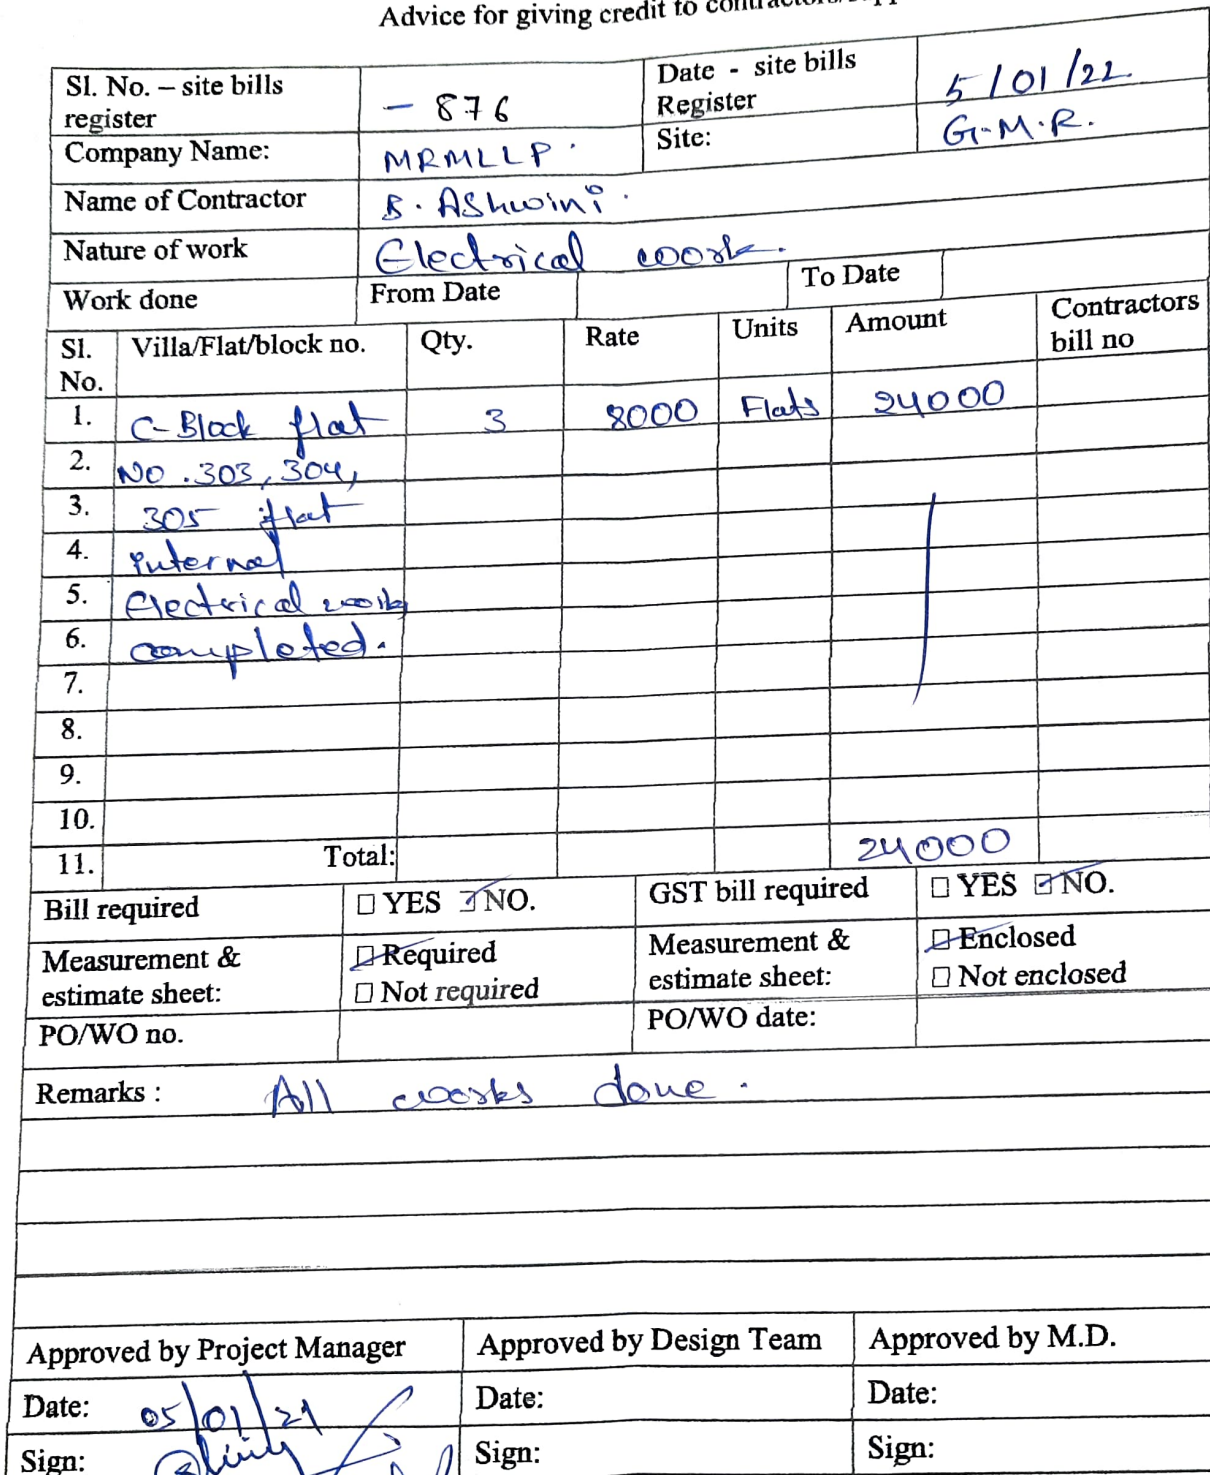 Advice for giving credit to
Sl. No. – site bills register - 876 Date - site bills Register 5/01/22
Company Name: MRMLLP. Site: G.M.R.
Name of Contractor B. Ashwini.
Nature of work Electrical work.
Work done From Date To Date
Sl. No. Villa/Flat/block no. Qty. Rate Units Amount Contractors bill no
1. C-Block flat 3 8000 Flats 24000
2. NO. 303, 304,
3. 305 flat
4. internal
5. Electrical work
6. completed.
7.
8.
9.
10.
11. Total: 24000
Bill required □ YES ☑ NO. GST bill required □ YES ☑ NO.
Measurement & estimate sheet: ☑ Required □ Not required Measurement & estimate sheet: ☑ Enclosed □ Not enclosed
PO/WO no. PO/WO date:
Remarks : All works done.
Approved by Project Manager Approved by Design Team Approved by M.D.
Date: 05/01/21 Date: Date:
Sign: Sign: Sign: